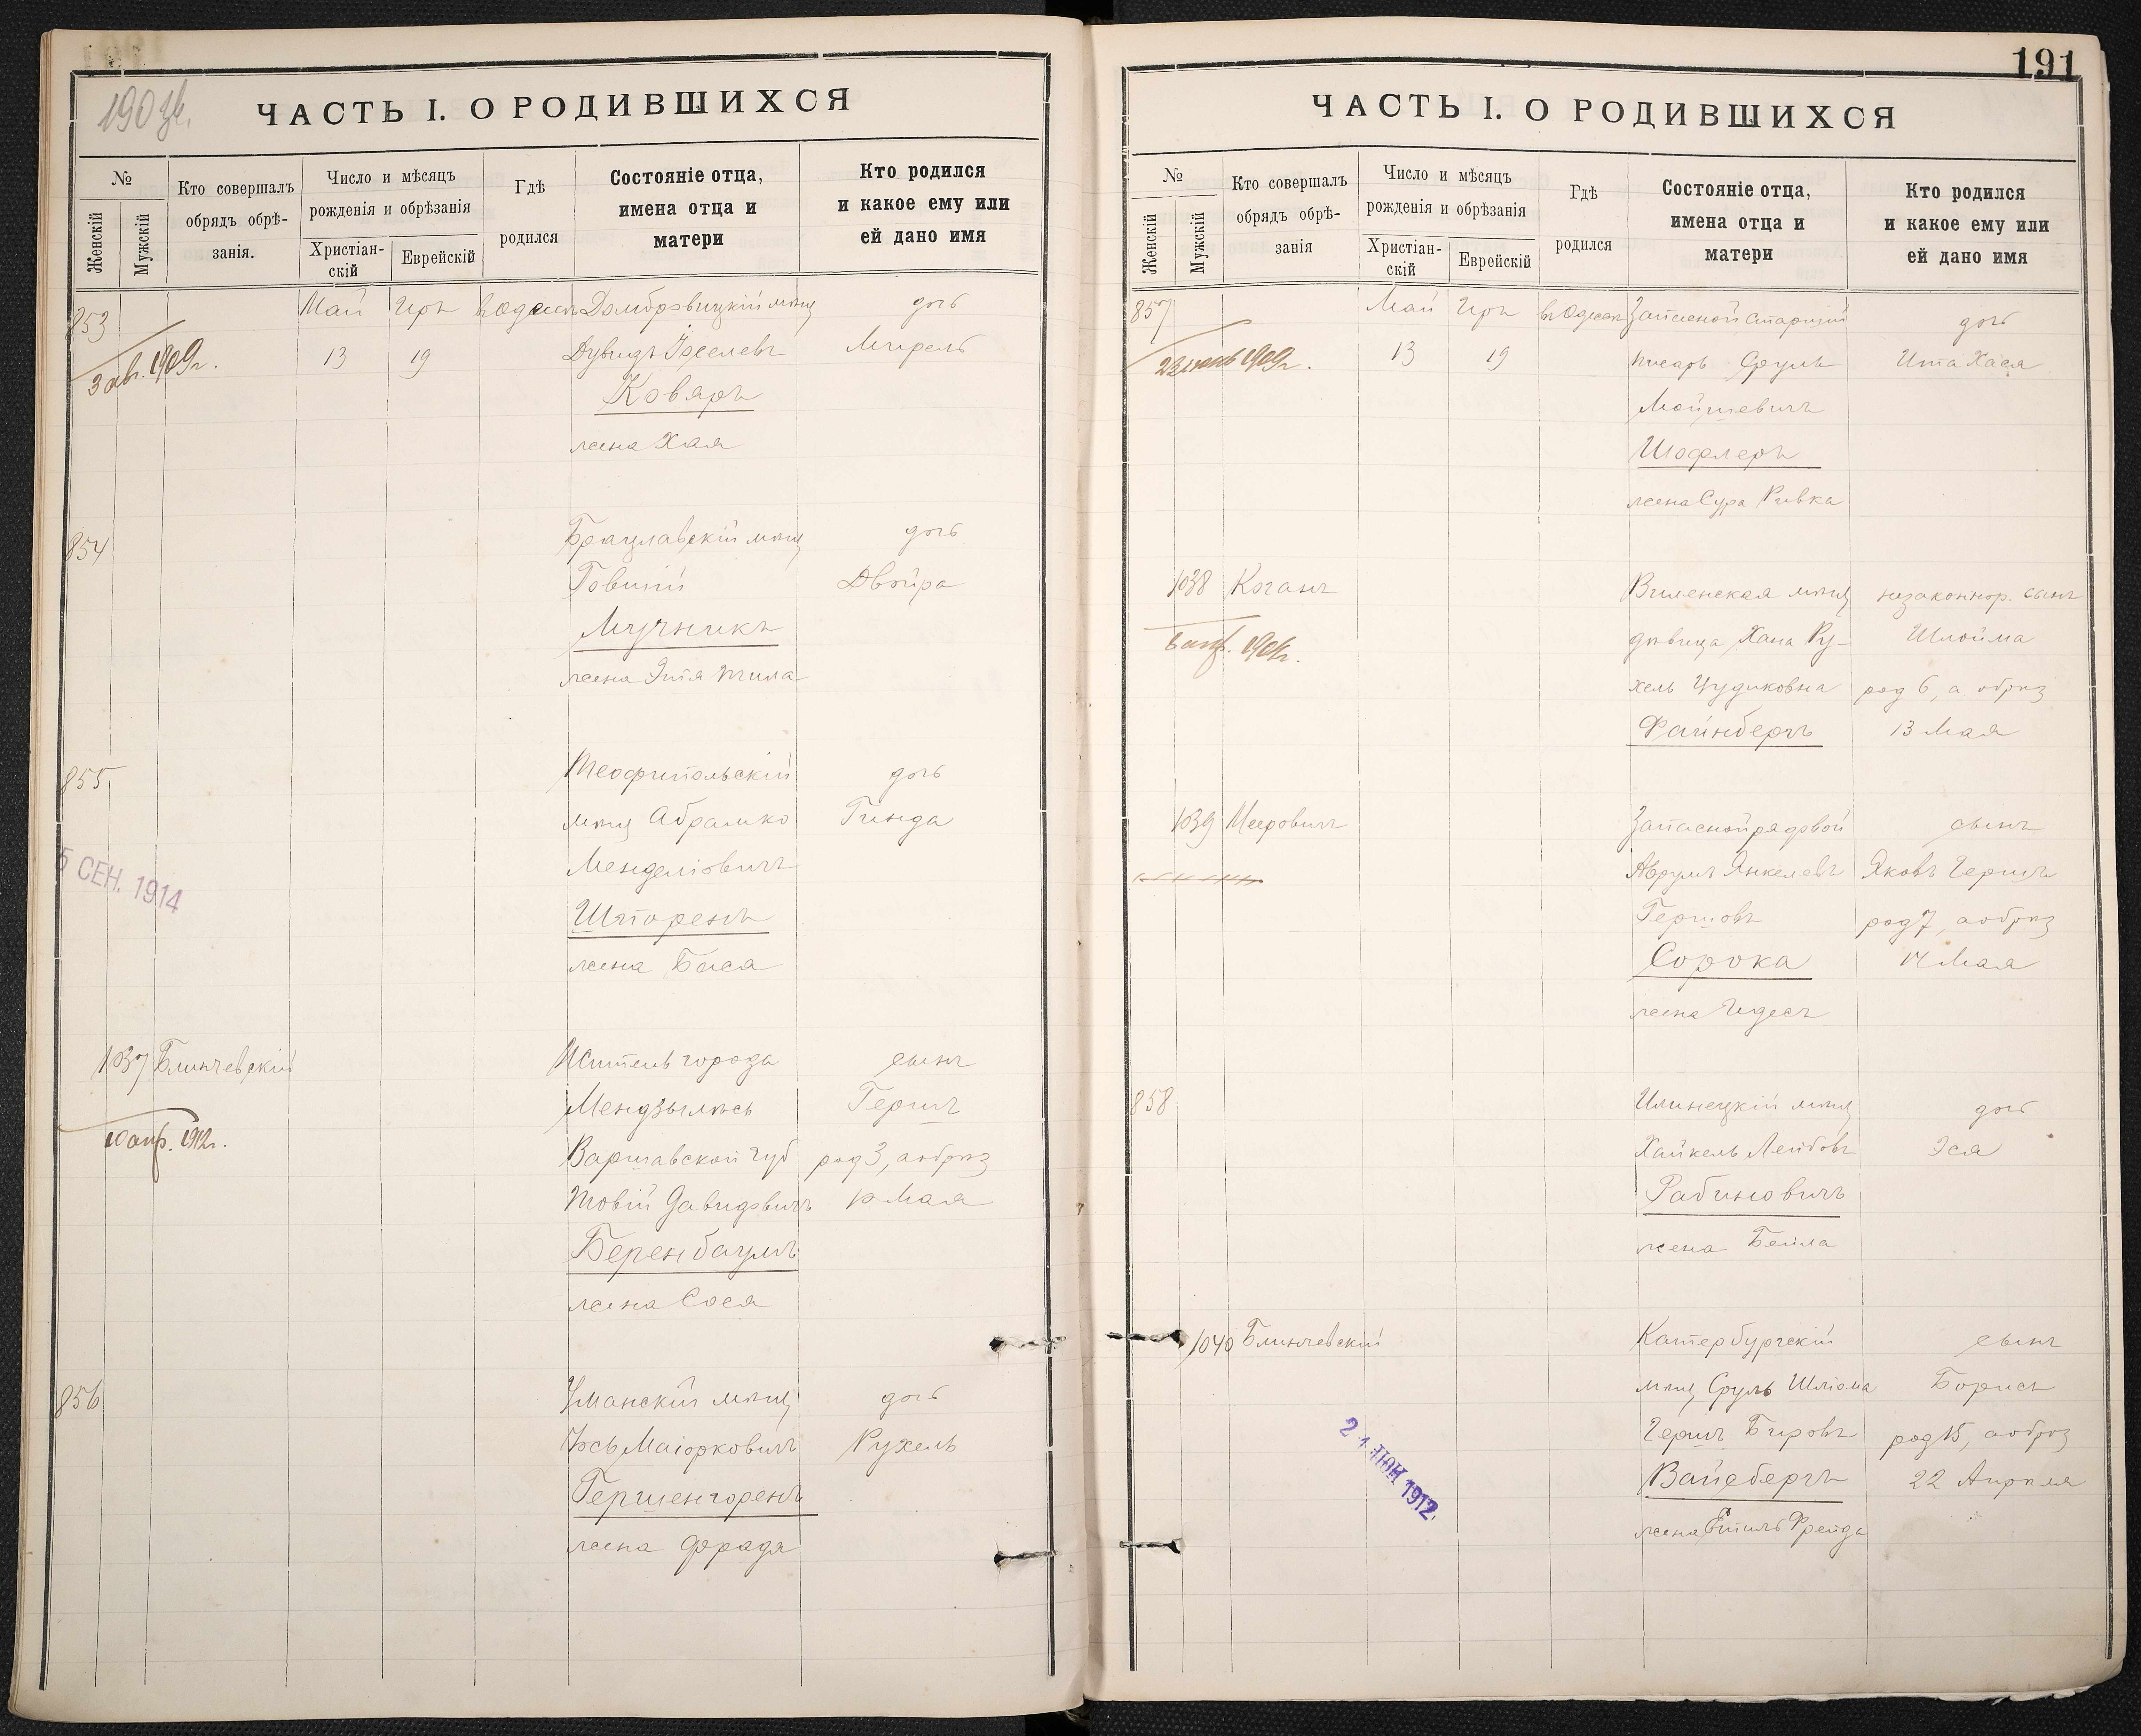 1903г.
ЧАСТЬ I. О РОДИВШИХСЯ
№
Женскій
Мужскій
Кто совершалъ
обрядъ обрѣ-
занія.
Число и мѣсяцъ
рожденія и обрѣзанія
Христіан-
скій
Еврейскій
Гдѣ
родился
Состояніе отца,
имена отца и
матери
Кто родился
и какое ему или
ей дано имя
853 Май Іяръ въ Одессѣ Домбровицкій мѣщ дочь
3 авг. 1909г. 13 19 Дувидъ Іоселевъ Мирель
Коваръ
жена Хая
854 Брацлавскій мѣщ дочь
Товшій Двойра
Мучникъ
жена Этя
855 Теофипольскій дочь
мѣщ Абрамко Гинда
Менделіовичъ
5 СЕН. 1914
Шторенъ
жена Бася
1037 Блинчевскій Житель города сынъ
Гершъ
10 апр. 1912г.
Варшавской губ род 3, а обрѣз
Товій Давидовичъ 10 Мая
Беренбаумъ
жена Сося
856 Уманскій мѣщ дочь
Іось Маіорковичъ Рухель
Гершенгоренъ
жена Фрадя
191
ЧАСТЬ I. О РОДИВШИХСЯ
№
Женскій
Мужскій
Кто совершалъ
обрядъ обрѣ-
занія
Число и мѣсяцъ
рожденія и обрѣзанія
Христіан-
скій
Еврейскій
Гдѣ
родился
Состояніе отца,
имена отца и
матери
Кто родился
и какое ему или
ей дано имя
857 Май Іяръ въ Одессѣ Запасной старшій дочь
1909г. 13 19 писарь Сруль Ита Хася
Мойшевичъ
Шофлеръ
жена Сура Ривка
1038 Коганъ Виленская мѣщ незаконнор. сынъ
дѣвица Хана Ру- Шлойма
хель Іудиковна род 6, а обрѣз
Файнбергъ 13 Мая
1039 Мееровичъ Запасной рядовой сынъ
Аврумъ Янкелевъ Яковъ Гершъ
Гершовъ род 7, а обрѣз
Сорока 14 Мая
жена Идесъ
858 Илинецкій мѣщ дочь
Хайкель Лейбовъ Эся
Рабиновичъ
жена Бейла
1040 Блинчевскій Катербургскій сынъ
мѣщ Сруль Шліома Борисъ
Гершъ Беровъ род 15, а обрѣз
Вайсбергъ 22 Апрѣля
21 ІЮН 1912
жена Фрейда